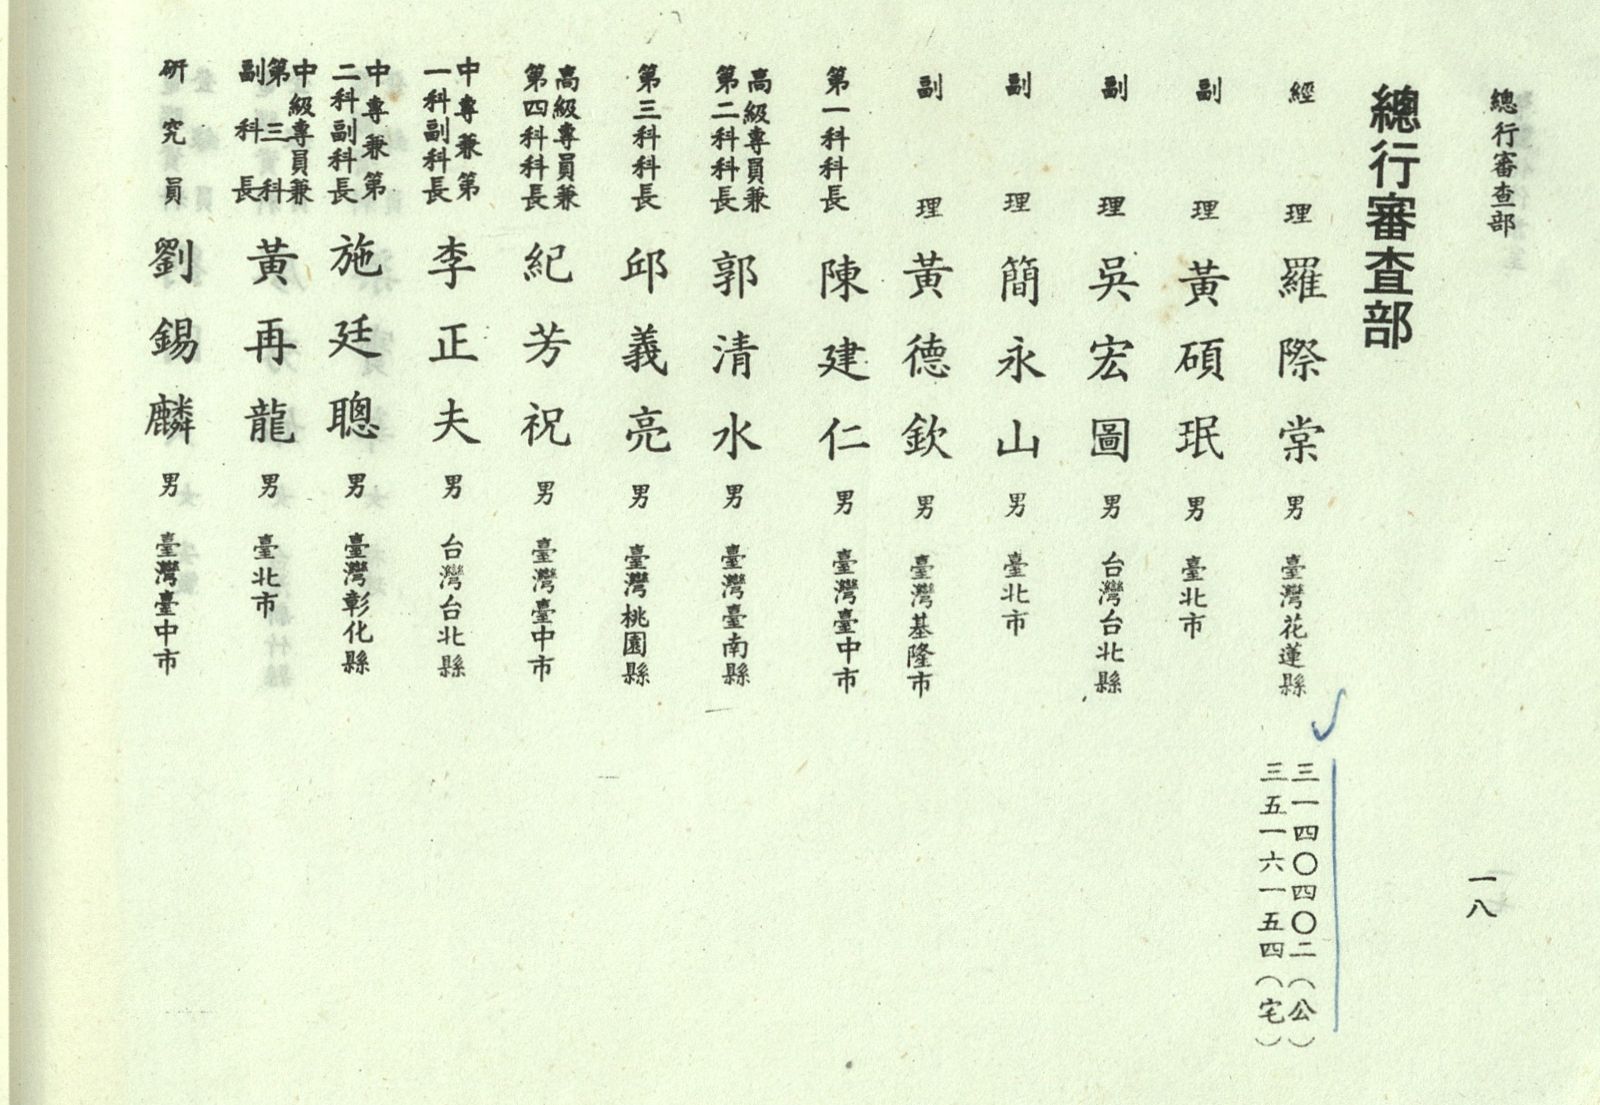 總行審查部
一八
總行審查部
經理 羅際棠 男 臺灣花蓮縣 三一四〇四〇二（公） 三五一六一五四（宅）
副理 黃碩珉 男 臺北市
副理 吳宏圖 男 台灣台北縣
副理 簡永山 男 臺北市
副理 黃德欽 男 臺灣基隆市
第一科科長 陳建仁 男 臺灣臺中市
高級專員兼第二科科長 郭清水 男 臺灣臺南縣
第三科科長 邱義亮 男 臺灣桃園縣
高級專員兼第四科科長 紀芳祝 男 臺灣臺中市
中專兼第一科副科長 李正夫 男 台灣台北縣
中專兼第二科副科長 施廷聰 男 臺灣彰化縣
中級專員兼第三科副科長 黃再龍 男 臺北市
研究員 劉錫麟 男 臺灣臺中市